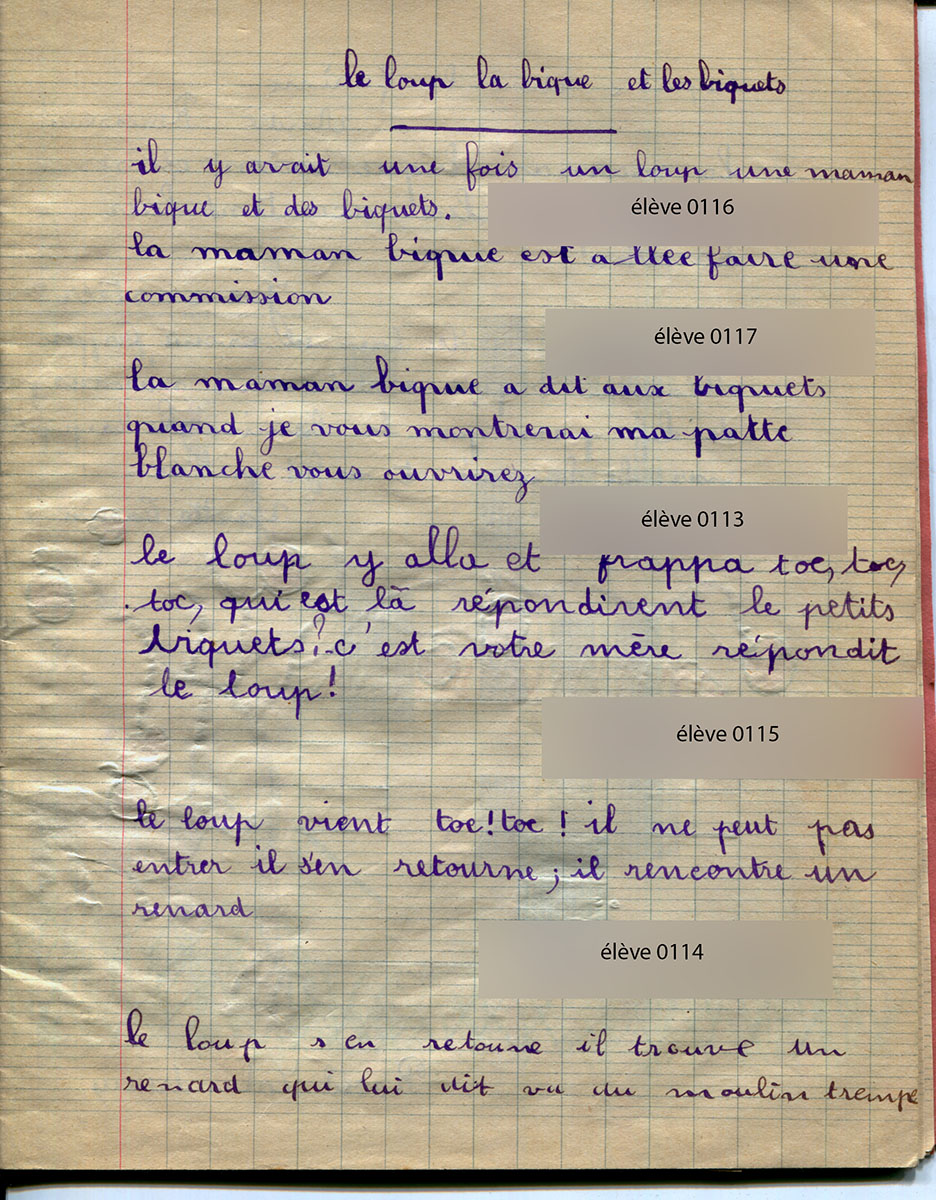 le loup la bique et les biquets
il y avait une fois un loup une maman
bique et des biquets.
élève 0116
la maman bique est allée faire une
commission
élève 0117
la maman bique a dit aux biquets
quand je vous montrerai ma patte
blanche vous ouvrirez
élève 0113
le loup y alla et frappa toc, toc,
toc, qui est là répondirent le petits
biquets? c'est votre mère répondit
le loup!
élève 0115
le loup vient toc! toc! il ne peut pas
entrer il s'en retourne; il rencontre un
renard
élève 0114
le loup s en retoune il trouve un
renard qui lui dit va du moulin trempe